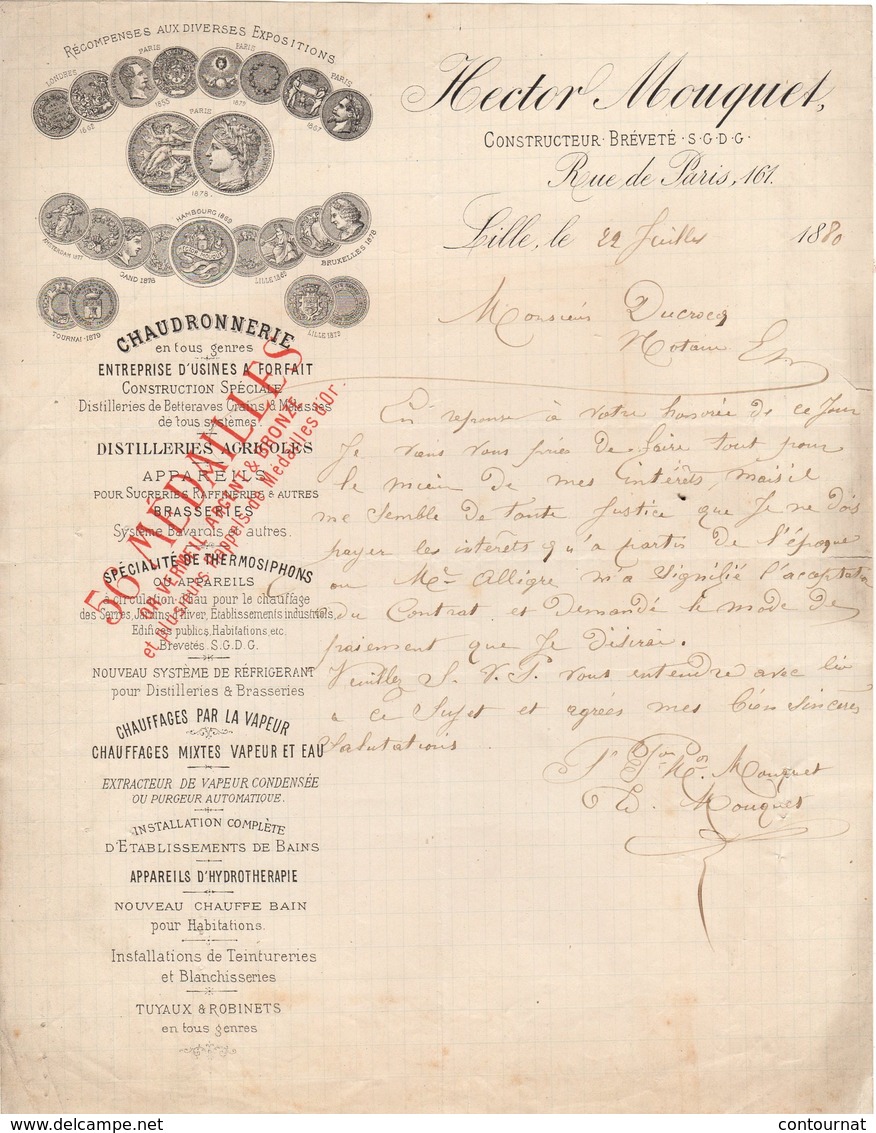 RÉCOMPENSES AUX DIVERSES EXPOSITIONS
LONDRES PARIS PARIS PARIS
1862 1855 1875 1867
PARIS
1878
HAMBOURG 1869
AMSTERDAM 1877 BRUXELLES 1876
GAND 1878 LILLE 1882
TOURNAI-1879 LILLE 1872
CHAUDRONNERIE
en tous genres
ENTREPRISE D'USINES A FORFAIT
CONSTRUCTION SPÉCIALE
Distilleries de Betteraves Grains & Mélasses
de tous systèmes.
DISTILLERIES AGRICOLES
APPAREILS
POUR SUCRERIES RAFFINERIES & AUTRES
BRASSERIES
Système Bavarois & autres.
SPÉCIALITÉ DE THERMOSIPHONS
OU APPAREILS
à circulation d'eau pour le chauffage
des Serres, Jardins d'hiver, Etablissements industriels,
Edifices publics, Habitations, etc.
Brevetés S.G.D.G.
NOUVEAU SYSTÈME DE RÉFRIGERANT
pour Distilleries & Brasseries
CHAUFFAGES PAR LA VAPEUR
CHAUFFAGES MIXTES VAPEUR ET EAU
EXTRACTEUR DE VAPEUR CONDENSÉE
OU PURGEUR AUTOMATIQUE.
INSTALLATION COMPLÈTE
D'ETABLISSEMENTS DE BAINS
APPAREILS D'HYDROTHERAPIE
NOUVEAU CHAUFFE BAIN
pour Habitations.
Installations de Teintureries
et Blanchisseries
TUYAUX & ROBINETS
en tous genres
56 MÉDAILLES
OR, VERMEIL, ARGENT & BRONZE
et plusieurs Rappels de Médailles d'Or.
Hector Mouquet,
CONSTRUCTEUR BRÉVETÉ S.G.D.G.
Rue de Paris, 161.
Lille, le 22 Juillet 1880
Monsieur Ducrocq
Notaire
En reponse à votre honorée de ce Jour
Je viens vous priés de faire tout pour
le mieux de mes intérêts, mais il
me semble de toute Justice que Je ne dois
payer les intérêts qu'a partir de l'époque
ou Mr Allègre m'a signifié l'acceptation
du Contrat et demandé le mode de
paiement que Je désirai.
Veuillez S. V. P. vous entendre avec lui
a ce Sujet et agrées mes bien sincères
salutations.
Mouquet
Mouquet
© delcampe.net
contournat